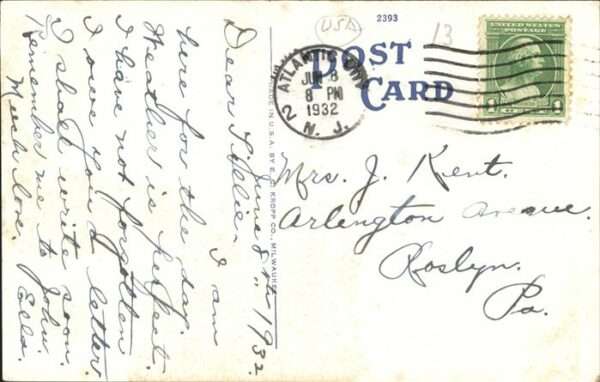 USA
2393
13
POST
CARD
UNITED STATES POSTAGE
1
ATLANTIC CITY
2
JUN 8
8 PM
1932
N. J.
MADE IN U.S.A. BY E. C. KROPP CO., MILWAUKEE
June 8th 1932.
Dear
I am
here for the day.
Weather is perfect.
I have not forgotten
I owe you a letter.
I shall write soon.
Remember me to John
Much love.
Ella.
Mrs. J. Kent.
Arlington Avenue.
Roslyn.
Pa.